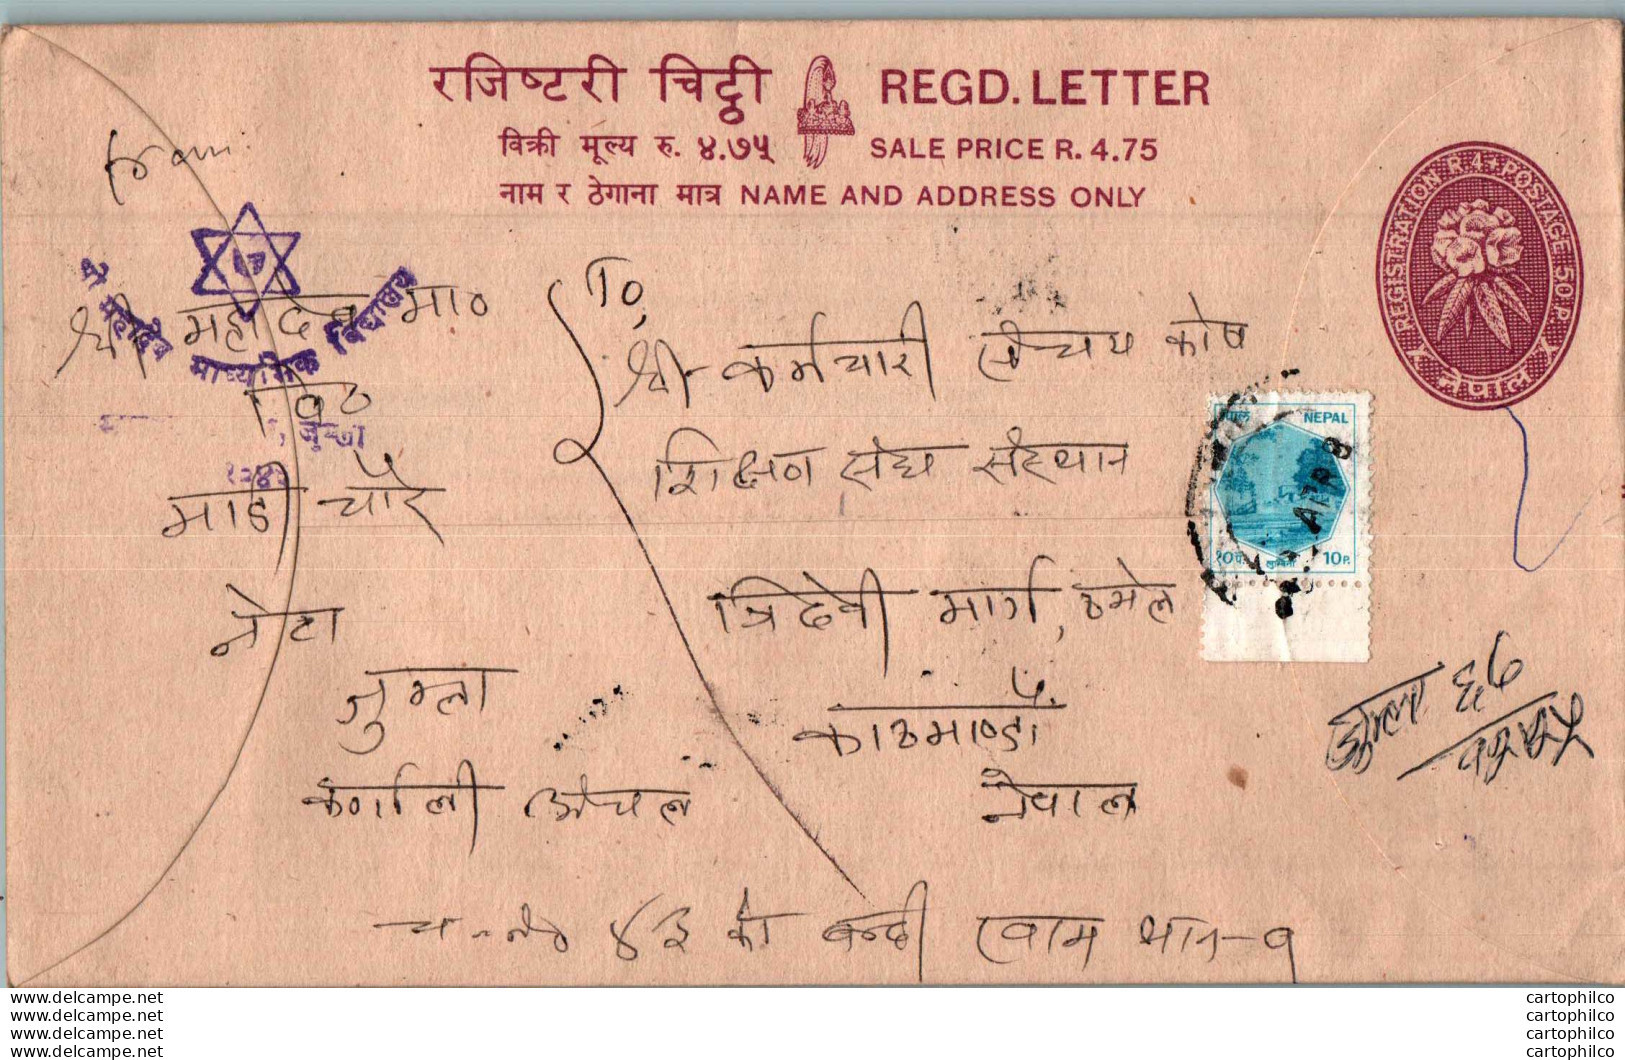 रजिष्टरी चिट्ठी REGD. LETTER
विक्री मूल्य रु. ४.७५ SALE PRICE R. 4.75
नाम र ठेगाना मात्र NAME AND ADDRESS ONLY
REGISTRATION R.4+POSTAGE 50P.
नेपाल
from:
श्री महादेव माध्यमिक विद्यालय
श्री महादेव मा०
वि०
माडी चौर
जुम्ला
कर्णाली अंचल
To,
श्री कर्मचारी संचय कोष
शिक्षण संघ संस्थान
त्रिदेवी मार्ग, ठमेल
काठमाण्डौ
नेपाल
NEPAL
१०पै. लुम्बिनी 10P.
च.नं० ४३ को बन्दी खाम थान-१
www.delcampe.net
www.delcampe.net
www.delcampe.net
www.delcampe.net
cartophilco
cartophilco
cartophilco
cartophilco